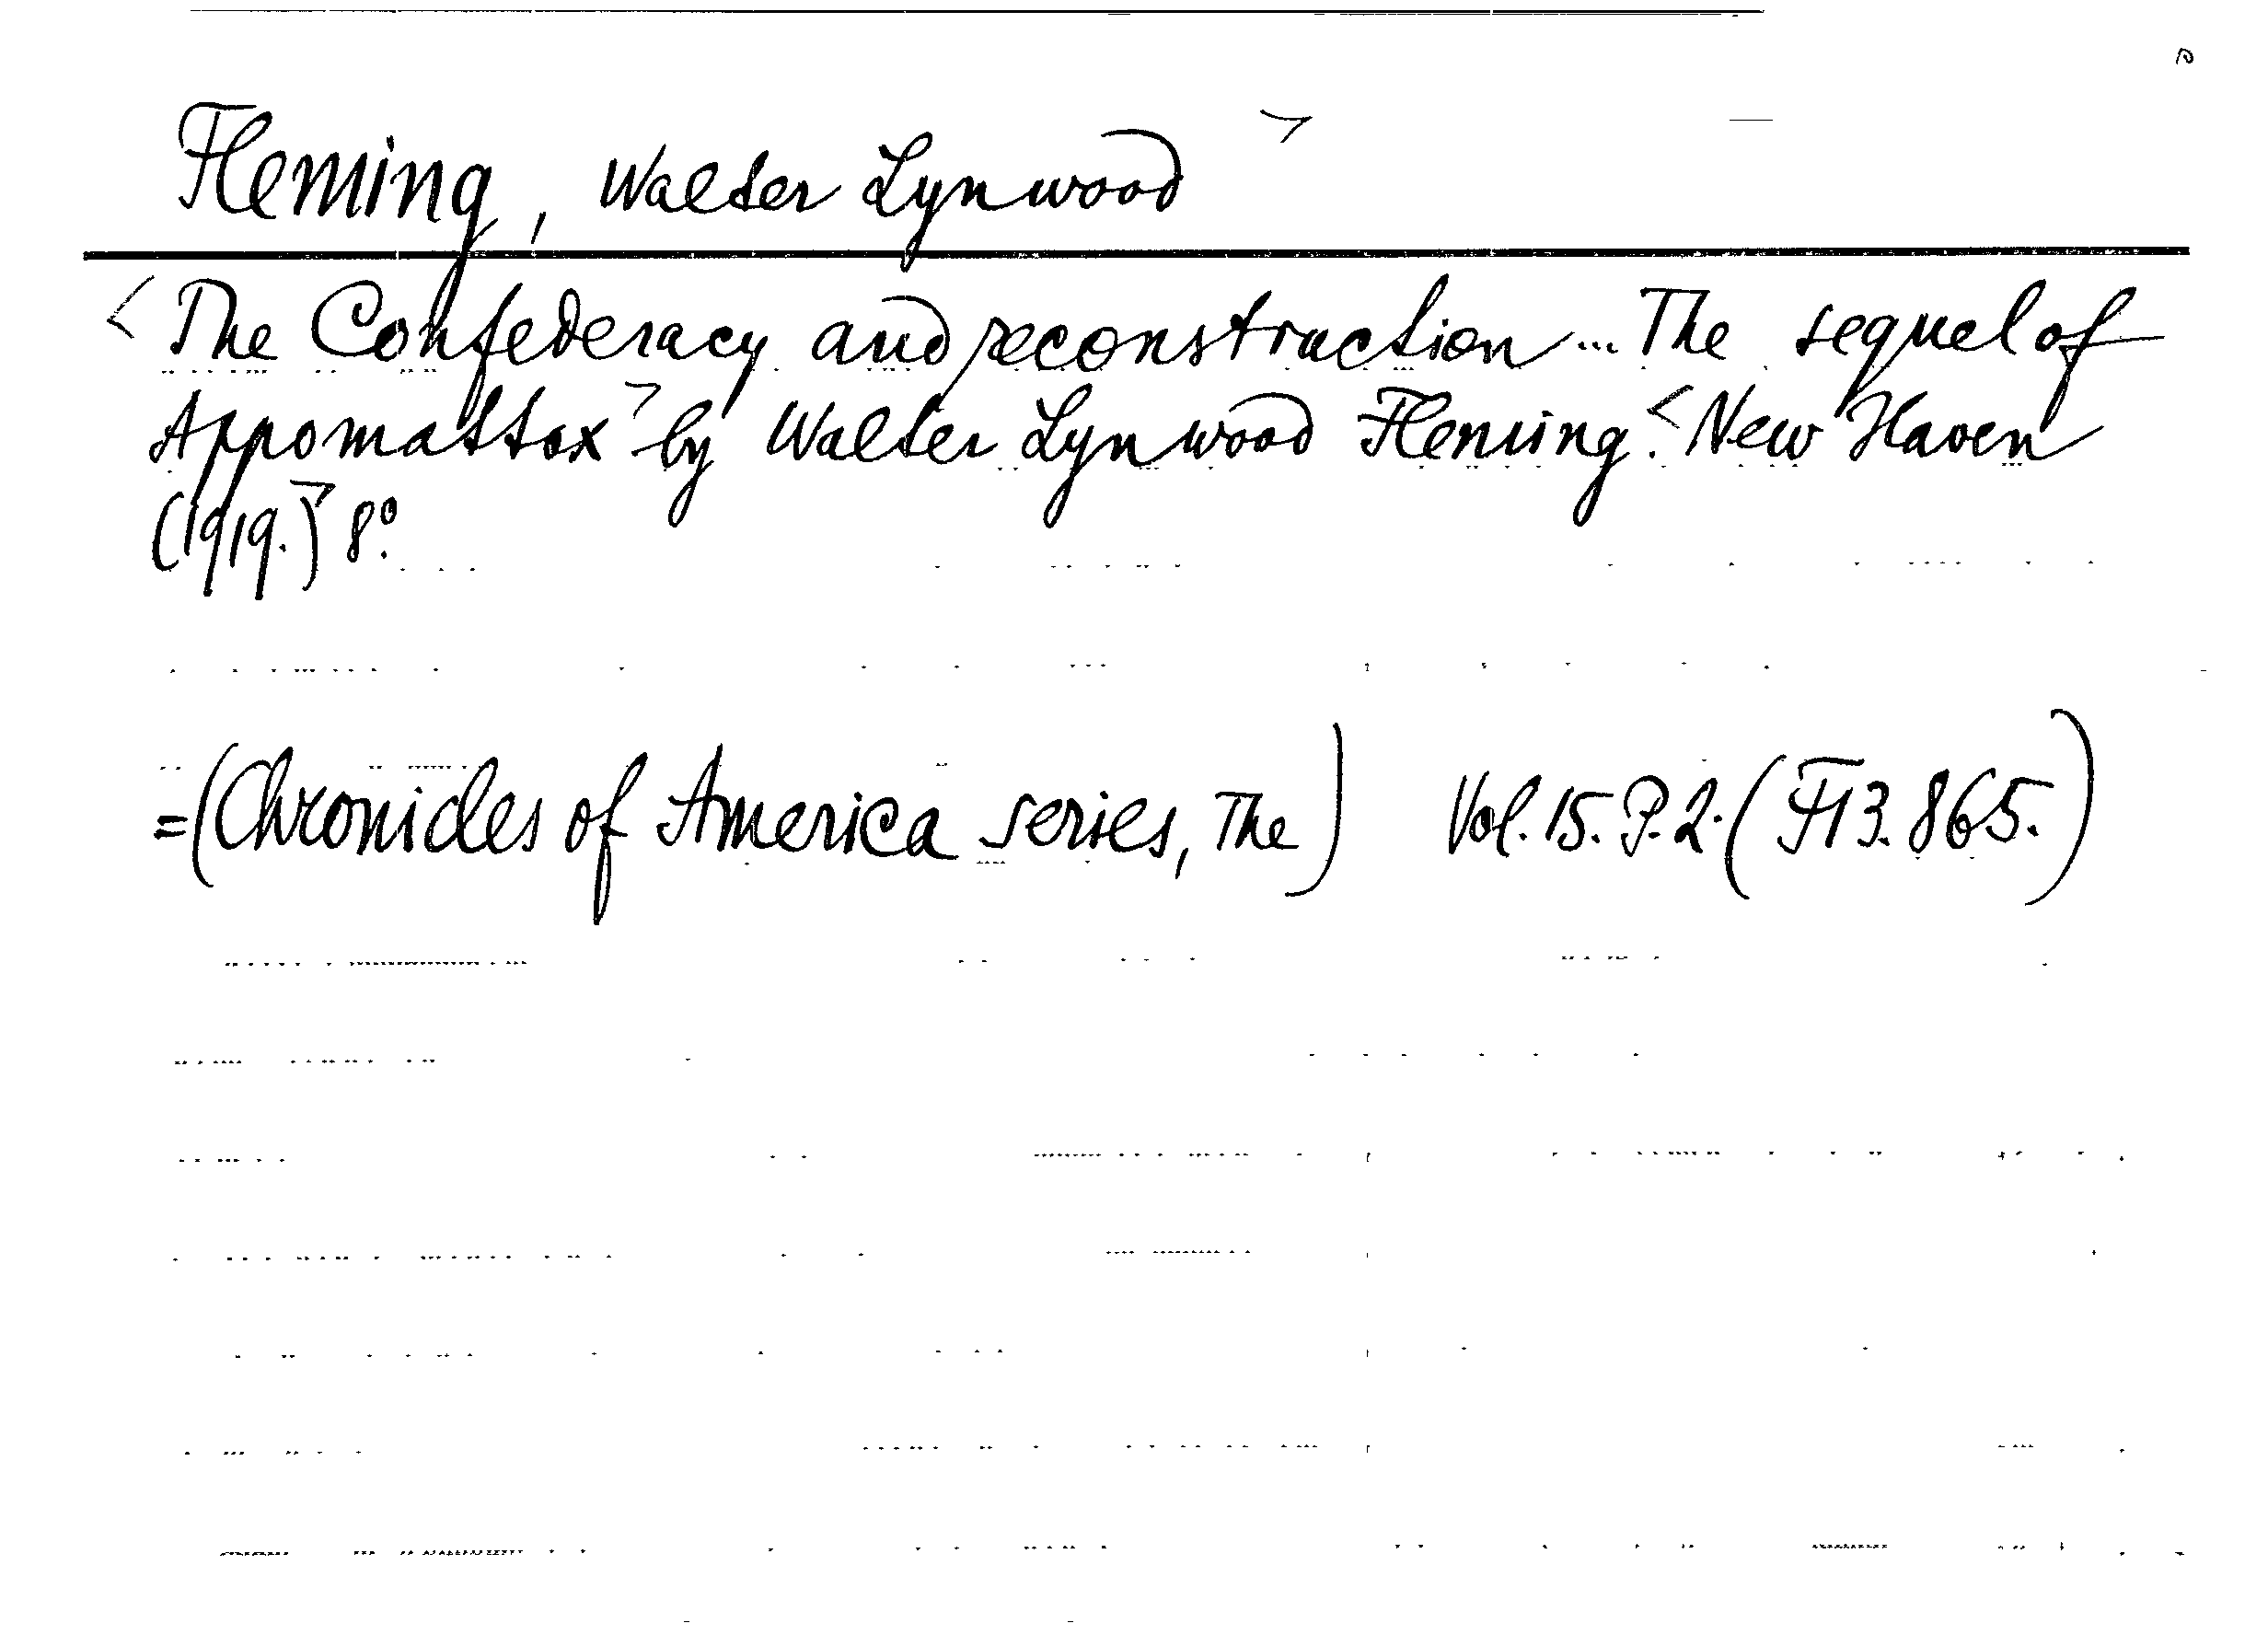 Fleming, Walter Lynwood >
< The Confederacy and reconstruction ... The sequel of
Appomattox > by Walter Lynwood Fleming. < New Haven
(1919.) > 8°.
= (Chronicles of America series, The) Vol. 15. P. 2. (F13.865.)